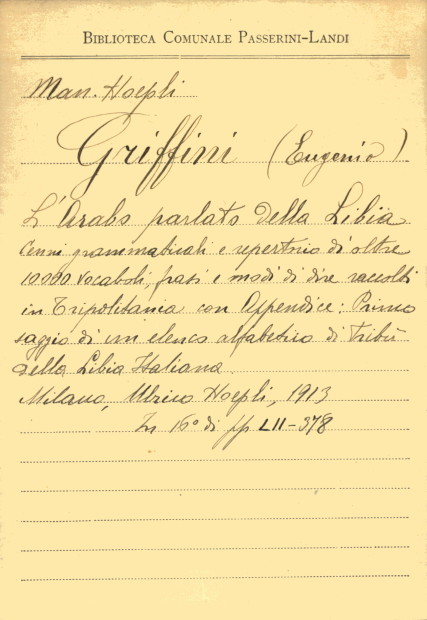 BIBLIOTECA COMUNALE PASSERINI-LANDI
Man. Hoepli
Griffini (Eugenio)
L'Arabo parlato della Libia
Cenni grammaticali e repertorio di oltre
10000 vocaboli, frasi e modi di dire raccolti
in Tripolitania con Appendice: Primo
saggio di un elenco alfabetico di tribù
della Libia Italiana.
Milano, Ulrico Hoepli, 1913
In 16° di pp LII-378